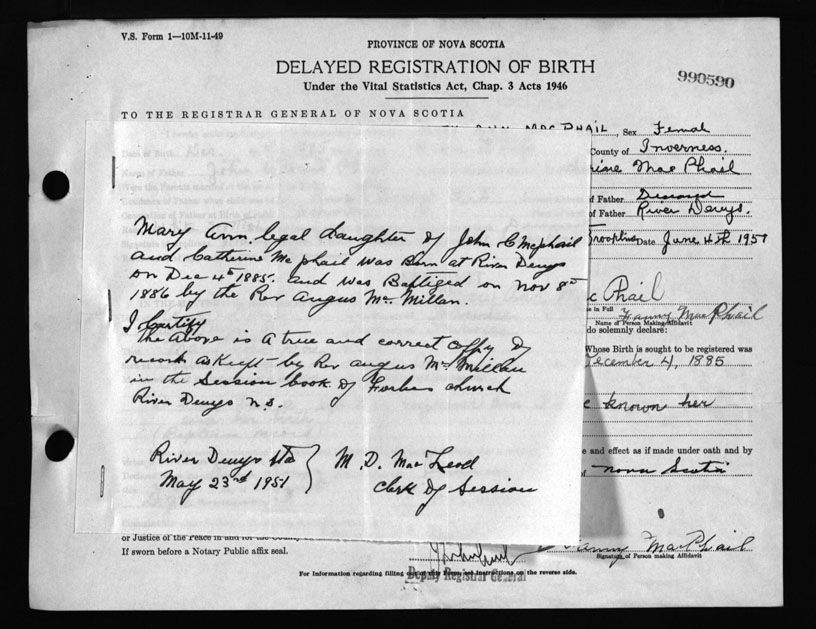 V.S. Form 1—10M-11-49
PROVINCE OF NOVA SCOTIA
DELAYED REGISTRATION OF BIRTH
Under the Vital Statistics Act, Chap. 3 Acts 1946
990590
TO THE REGISTRAR GENERAL OF NOVA SCOTIA
MacPHAIL, Sex Femal
County of Inverness.
rine MacPhail
of Father Deceased
of Father River Denys.
Date June 4th 1951
c Phail
s in Full Fanny MacPhail
Name of Person Making Affidavit
do solemnly declare:
Whose Birth is sought to be registered was
December 4, 1885
e known her
e and effect as if made under oath and by
of Nova Scotia
Mary Ann. legal daughter of John C Mcphail
and Catherine Mcphail was Born at River Denys
on Dec 4th 1885. and was Baptized on Nov 8th
1886 by the Rev Angus Mc Millan.
I Certify
the above is a true and correct coppy of
record as Kept by Rev Angus Mc Millan
in the Session book of Forbes church
River Denys N.S.
River Denys Sta
May 23rd 1951
M. D. MacLeod
Clerk of Session
or Justice of the Peace in and for the County
If sworn before a Notary Public affix seal.
Fanny MacPhail
Signature of Person making Affidavit
For Information regarding filling out of this Form, see Instructions on the reverse side.
Deputy Registrar General